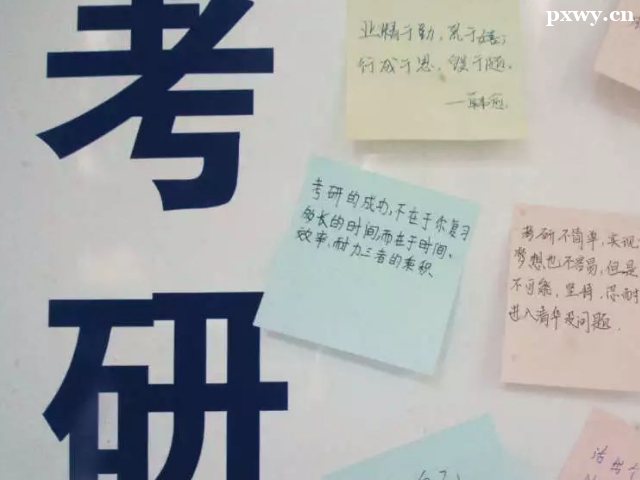 pxwy.cn
考
研
业精于勤，荒于嬉；
行成于思，毁于随。
——韩愈
考研的成功，不在于你复习
多长的时间，而在于时间、
效率、耐力三者的乘积
考研不简单，实现
梦想也不容易，但是
不可能，坚持，忍耐
进入清华没问题．